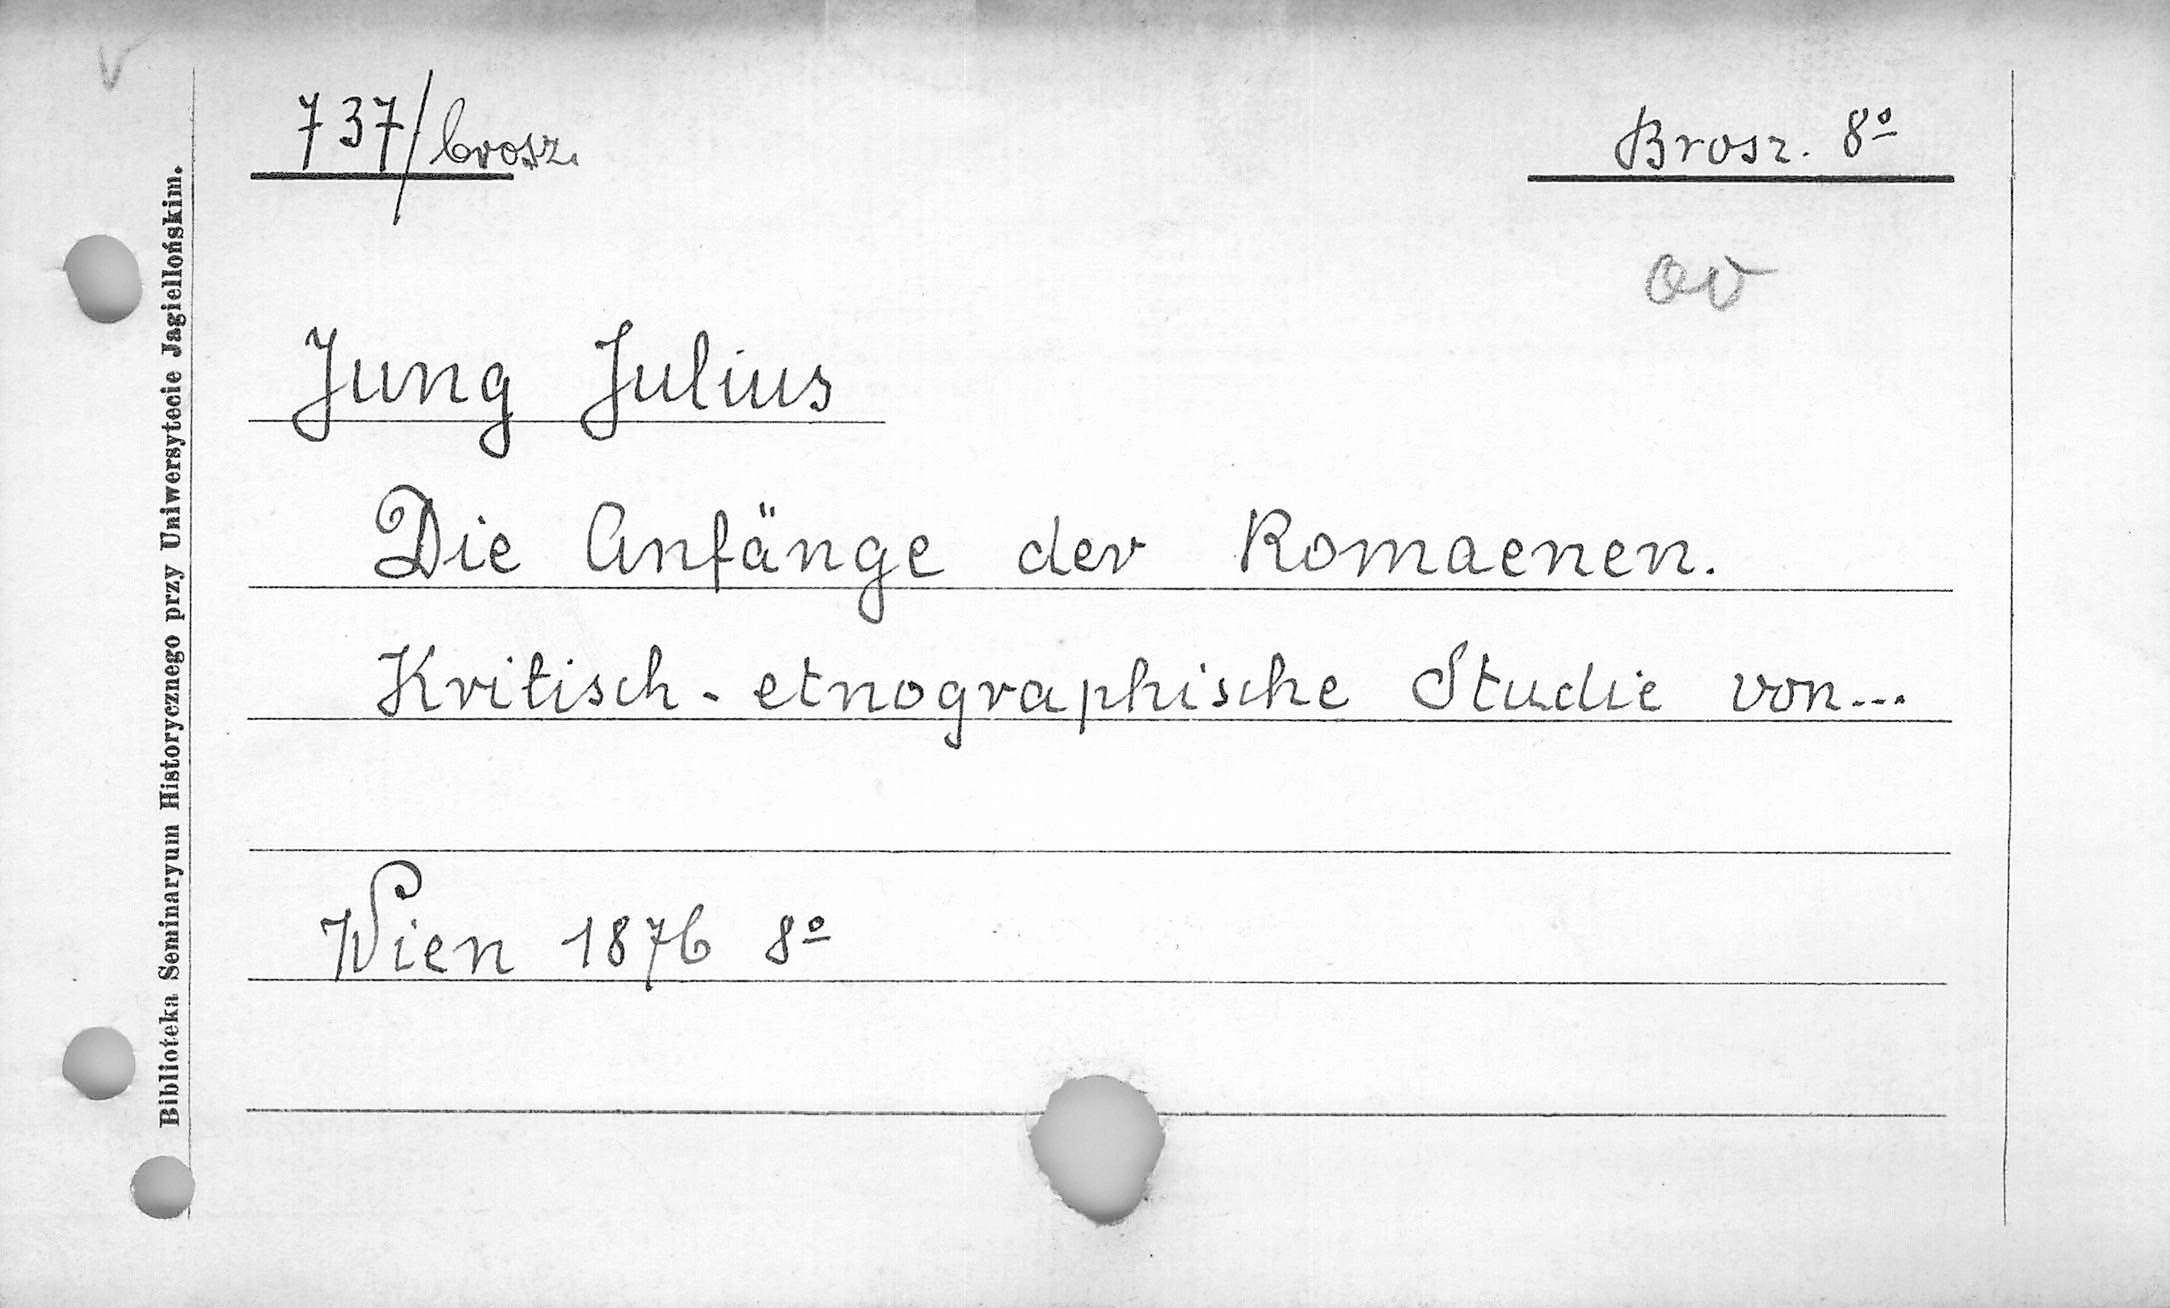 737/brosz.
Brosz. 8º
ov
Jung Julius
Die Anfänge der Romaenen.
Kritisch-etnographische Studie von...
Wien 1876 8º
Biblioteka Seminaryum Historycznego przy Uniwersytecie Jagiellońskim.